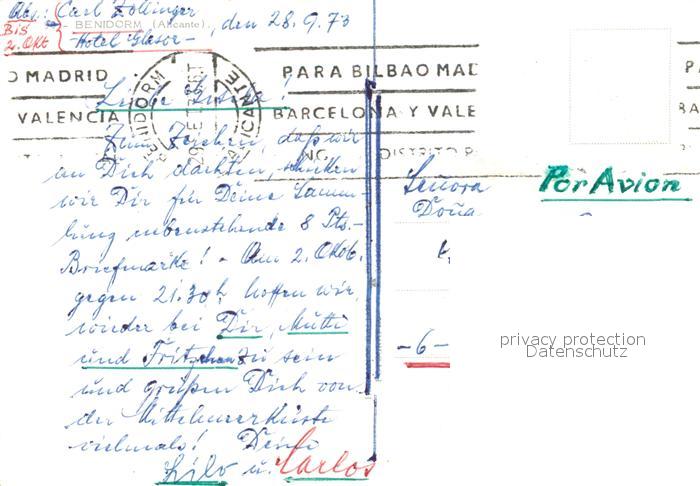 Abs: Carl Zollinger
BENIDORM (Alicante), den 28.9.73
Bis 2. Okt
Hotel Glasor
MADRID
VALENCIA
BENIDORM
ALICANTE
PARA BILBAO MAD
BARCELONA Y VALE
DISTRITO P
Liebe
Zum Zeichen, daß wir
an Dich dachten, schicken
wir Dir für Deine Samm-
lung nebenstehende 8 Pts.-
Briefmarke! - Am 2. Okob.
gegen 21.30h hoffen wir,
wieder bei Dir, Mutti
und Fritzchen zu sein
und grüßen Dich von
der Mittelmeerküste
vielmals! Deine
Lilo u. Carlos
Por Avion
Senora
Doña
-6-
privacy protection
Datenschutz